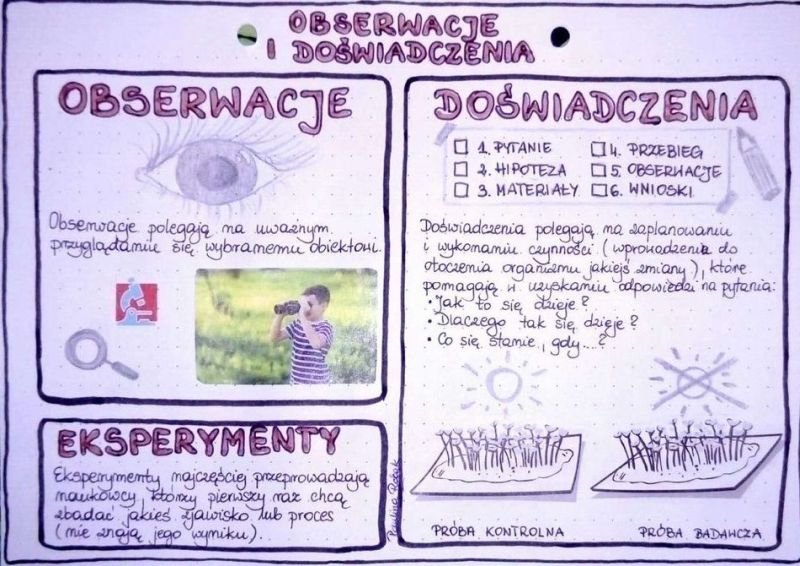 OBSERWACJE
I DOŚWIADCZENIA
OBSERWACJE
Obserwacje polegają na uważnym
przyglądaniu się wybranemu obiektowi.
EKSPERYMENTY
Eksperymenty najczęściej przeprowadzają
naukowcy, którzy pierwszy raz chcą
zbadać jakieś zjawisko lub proces
(nie znają jego wyniku).
DOŚWIADCZENIA
1. PYTANIE
2. HIPOTEZA
3. MATERIAŁY
4. PRZEBIEG
5. OBSERWACJE
6. WNIOSKI
Doświadczenia polegają na zaplanowaniu
i wykonaniu czynności (wprowadzenia do
otoczenia organizmu jakiejś zmiany), które
pomagają w uzyskaniu odpowiedzi na pytania:
• Jak to się dzieje?
• Dlaczego tak się dzieje?
• Co się stanie, gdy...?
PRÓBA KONTROLNA
PRÓBA BADAWCZA
Paulina